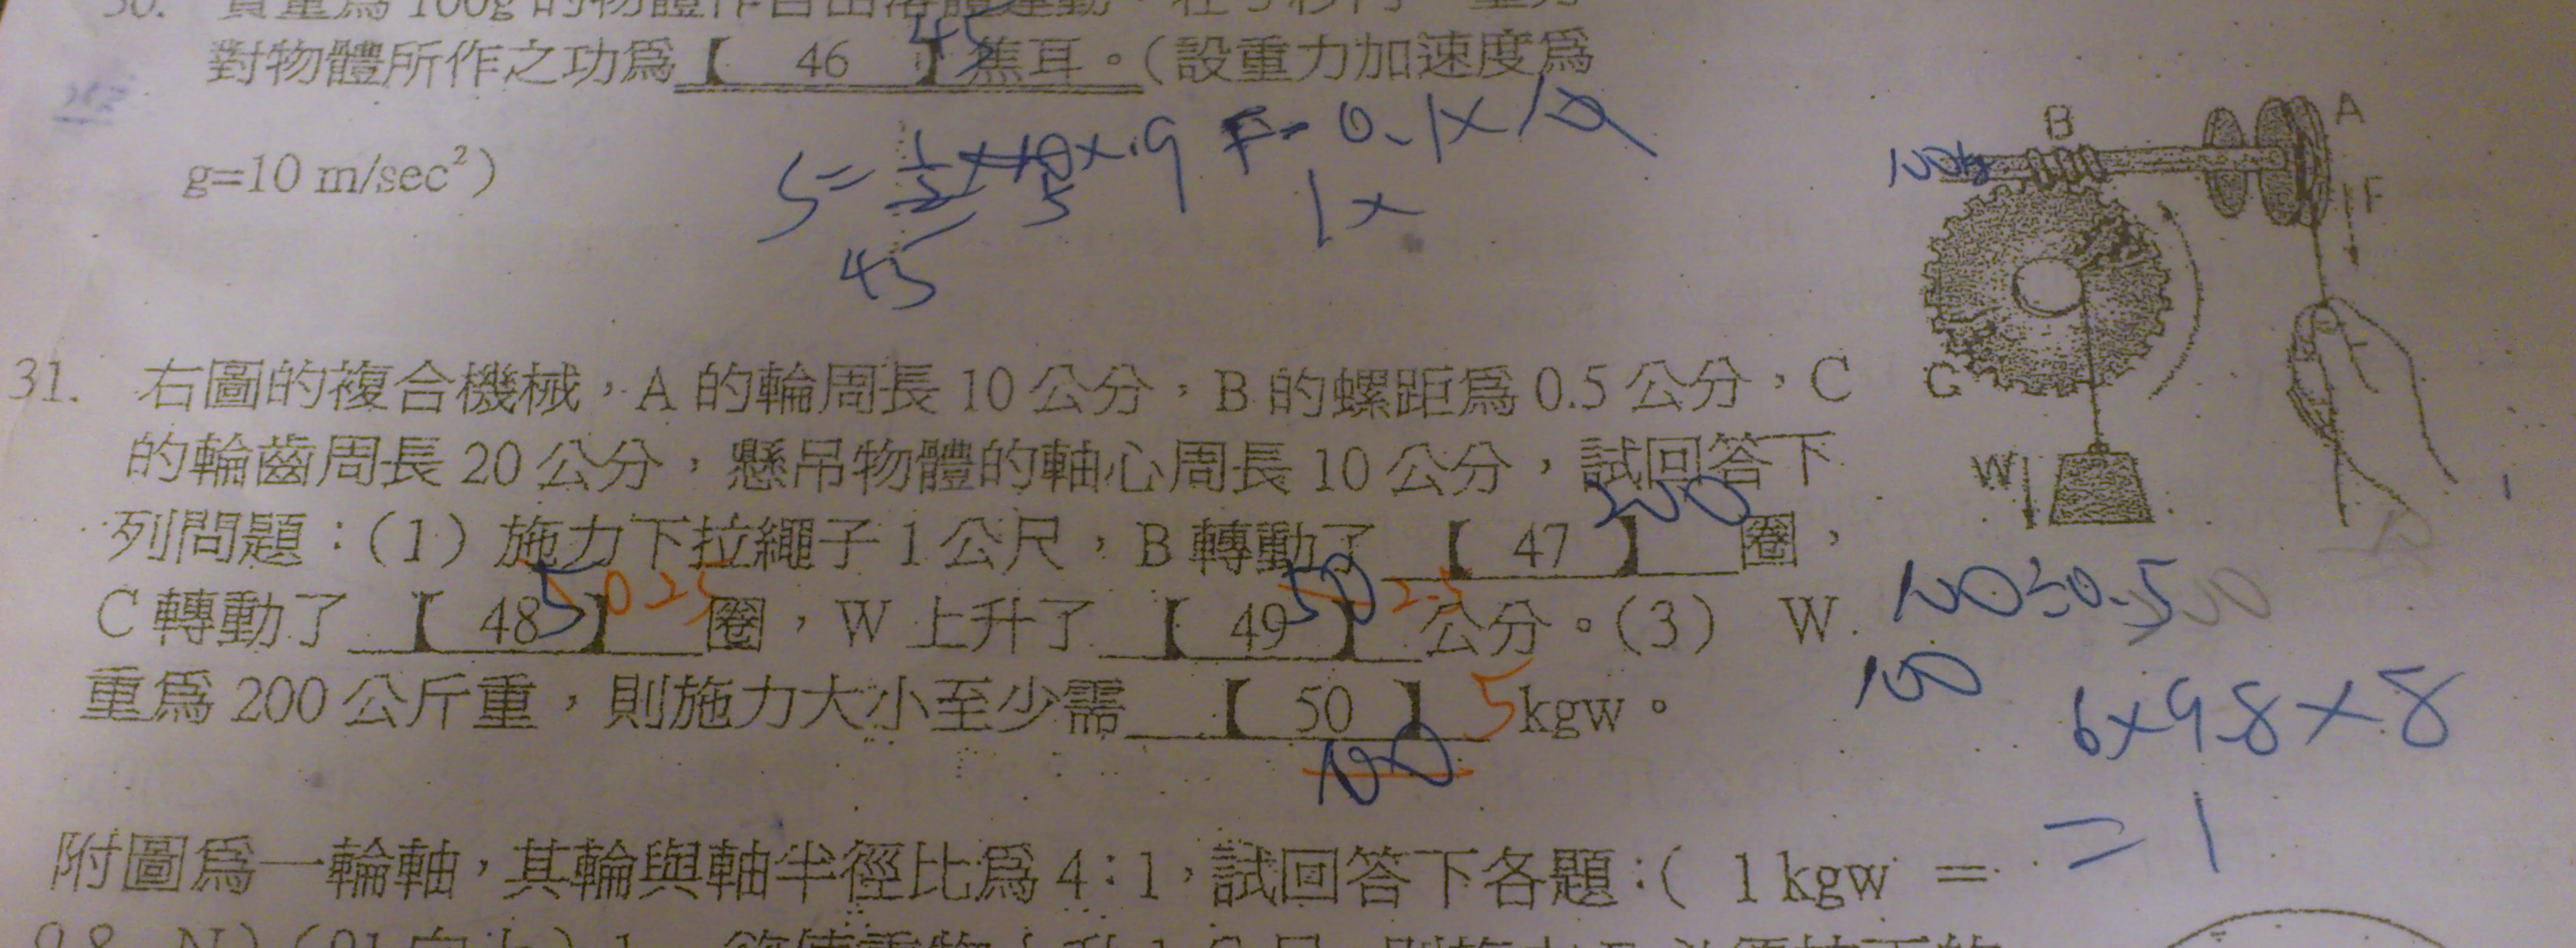 30. 質量為 100g 的物體作自由落體運動,在
對物體所作之功為【 46 】焦耳。(設重力加速度為
45
g=10 m/sec²)
S= 1/2 ×10×.9 F= 0.1×10
5
1×
45
B
A
100
F
C
W
31. 右圖的複合機械,A 的輪周長 10 公分,B 的螺距為 0.5 公分,C
的輪齒周長 20 公分,懸吊物體的軸心周長 10 公分,試回答下
列問題:(1) 施力下拉繩子 1 公尺,B 轉動了【 47 】圈,
200
C 轉動了【 48 】圈,W 上升了【 49 】公分。(3) W
5 0.25 50 2.5
重為 200 公斤重,則施力大小至少需【 50 】kgw。
5
100
100÷0.5
200
100
6×9.8×8
=1
附圖為一輪軸,其輪與軸半徑比為 4:1,試回答下各題:( 1 kgw =
9.8 N)